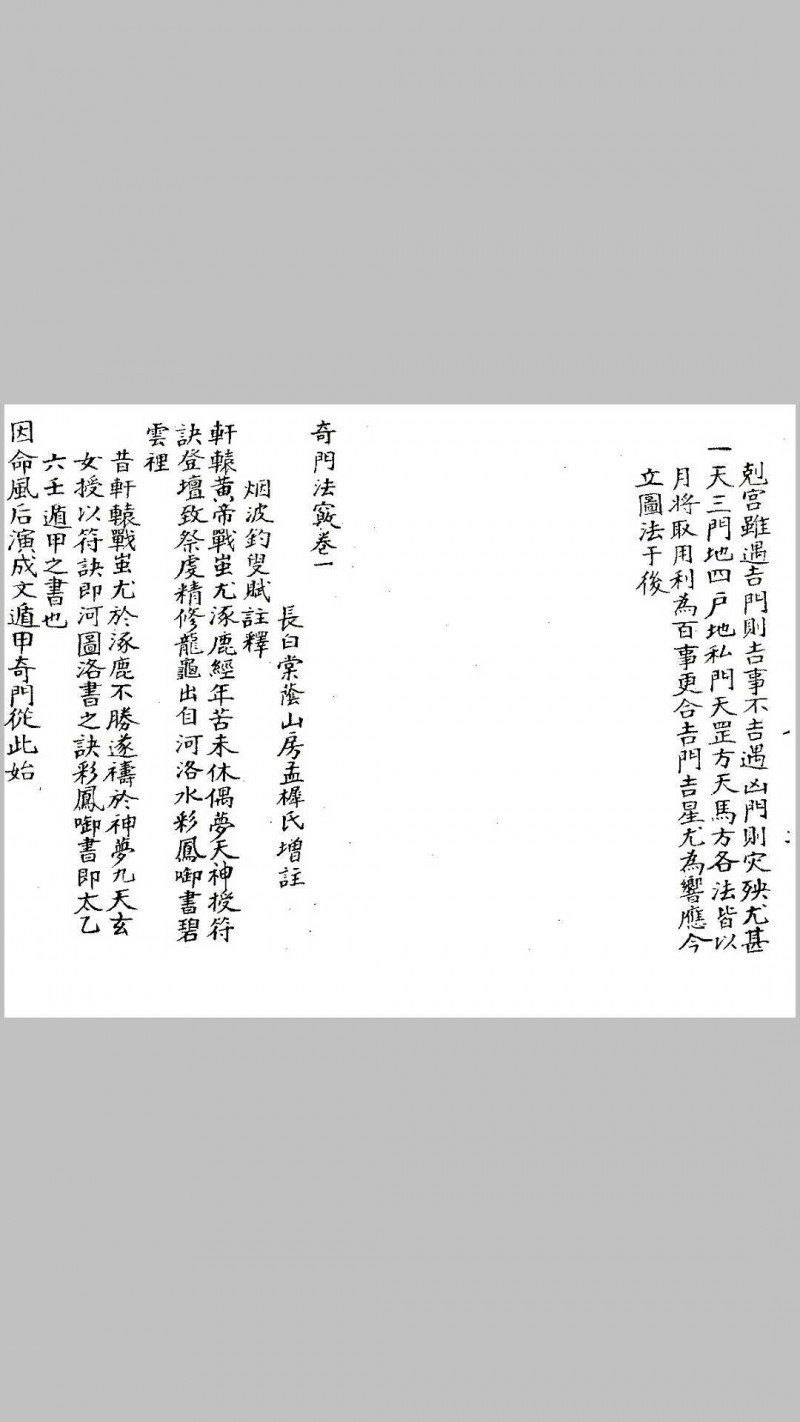 剋宮雖遇吉門則吉事不吉遇凶門則灾殃尤甚
一天三門地四户地私門天罡方天馬方各法皆以
月将取用利為百事更合吉門吉星尤為響應今
立圖法于後
奇門法竅卷一
長白棠蔭山房孟樨氏增註
烟波釣叟賦註釋
軒轅黄帝戰蚩尤涿鹿經年苦未休偶夢天神授符
訣登壇致祭虔精修龍龜出自河洛水彩鳳啣書碧
雲裡
昔軒轅戰蚩尤於涿鹿不勝遂禱於神夢九天玄
女授以符訣即河圖洛書之訣彩鳳啣書即太乙
六壬遁甲之書也
因命風后演成文遁甲奇門從此始